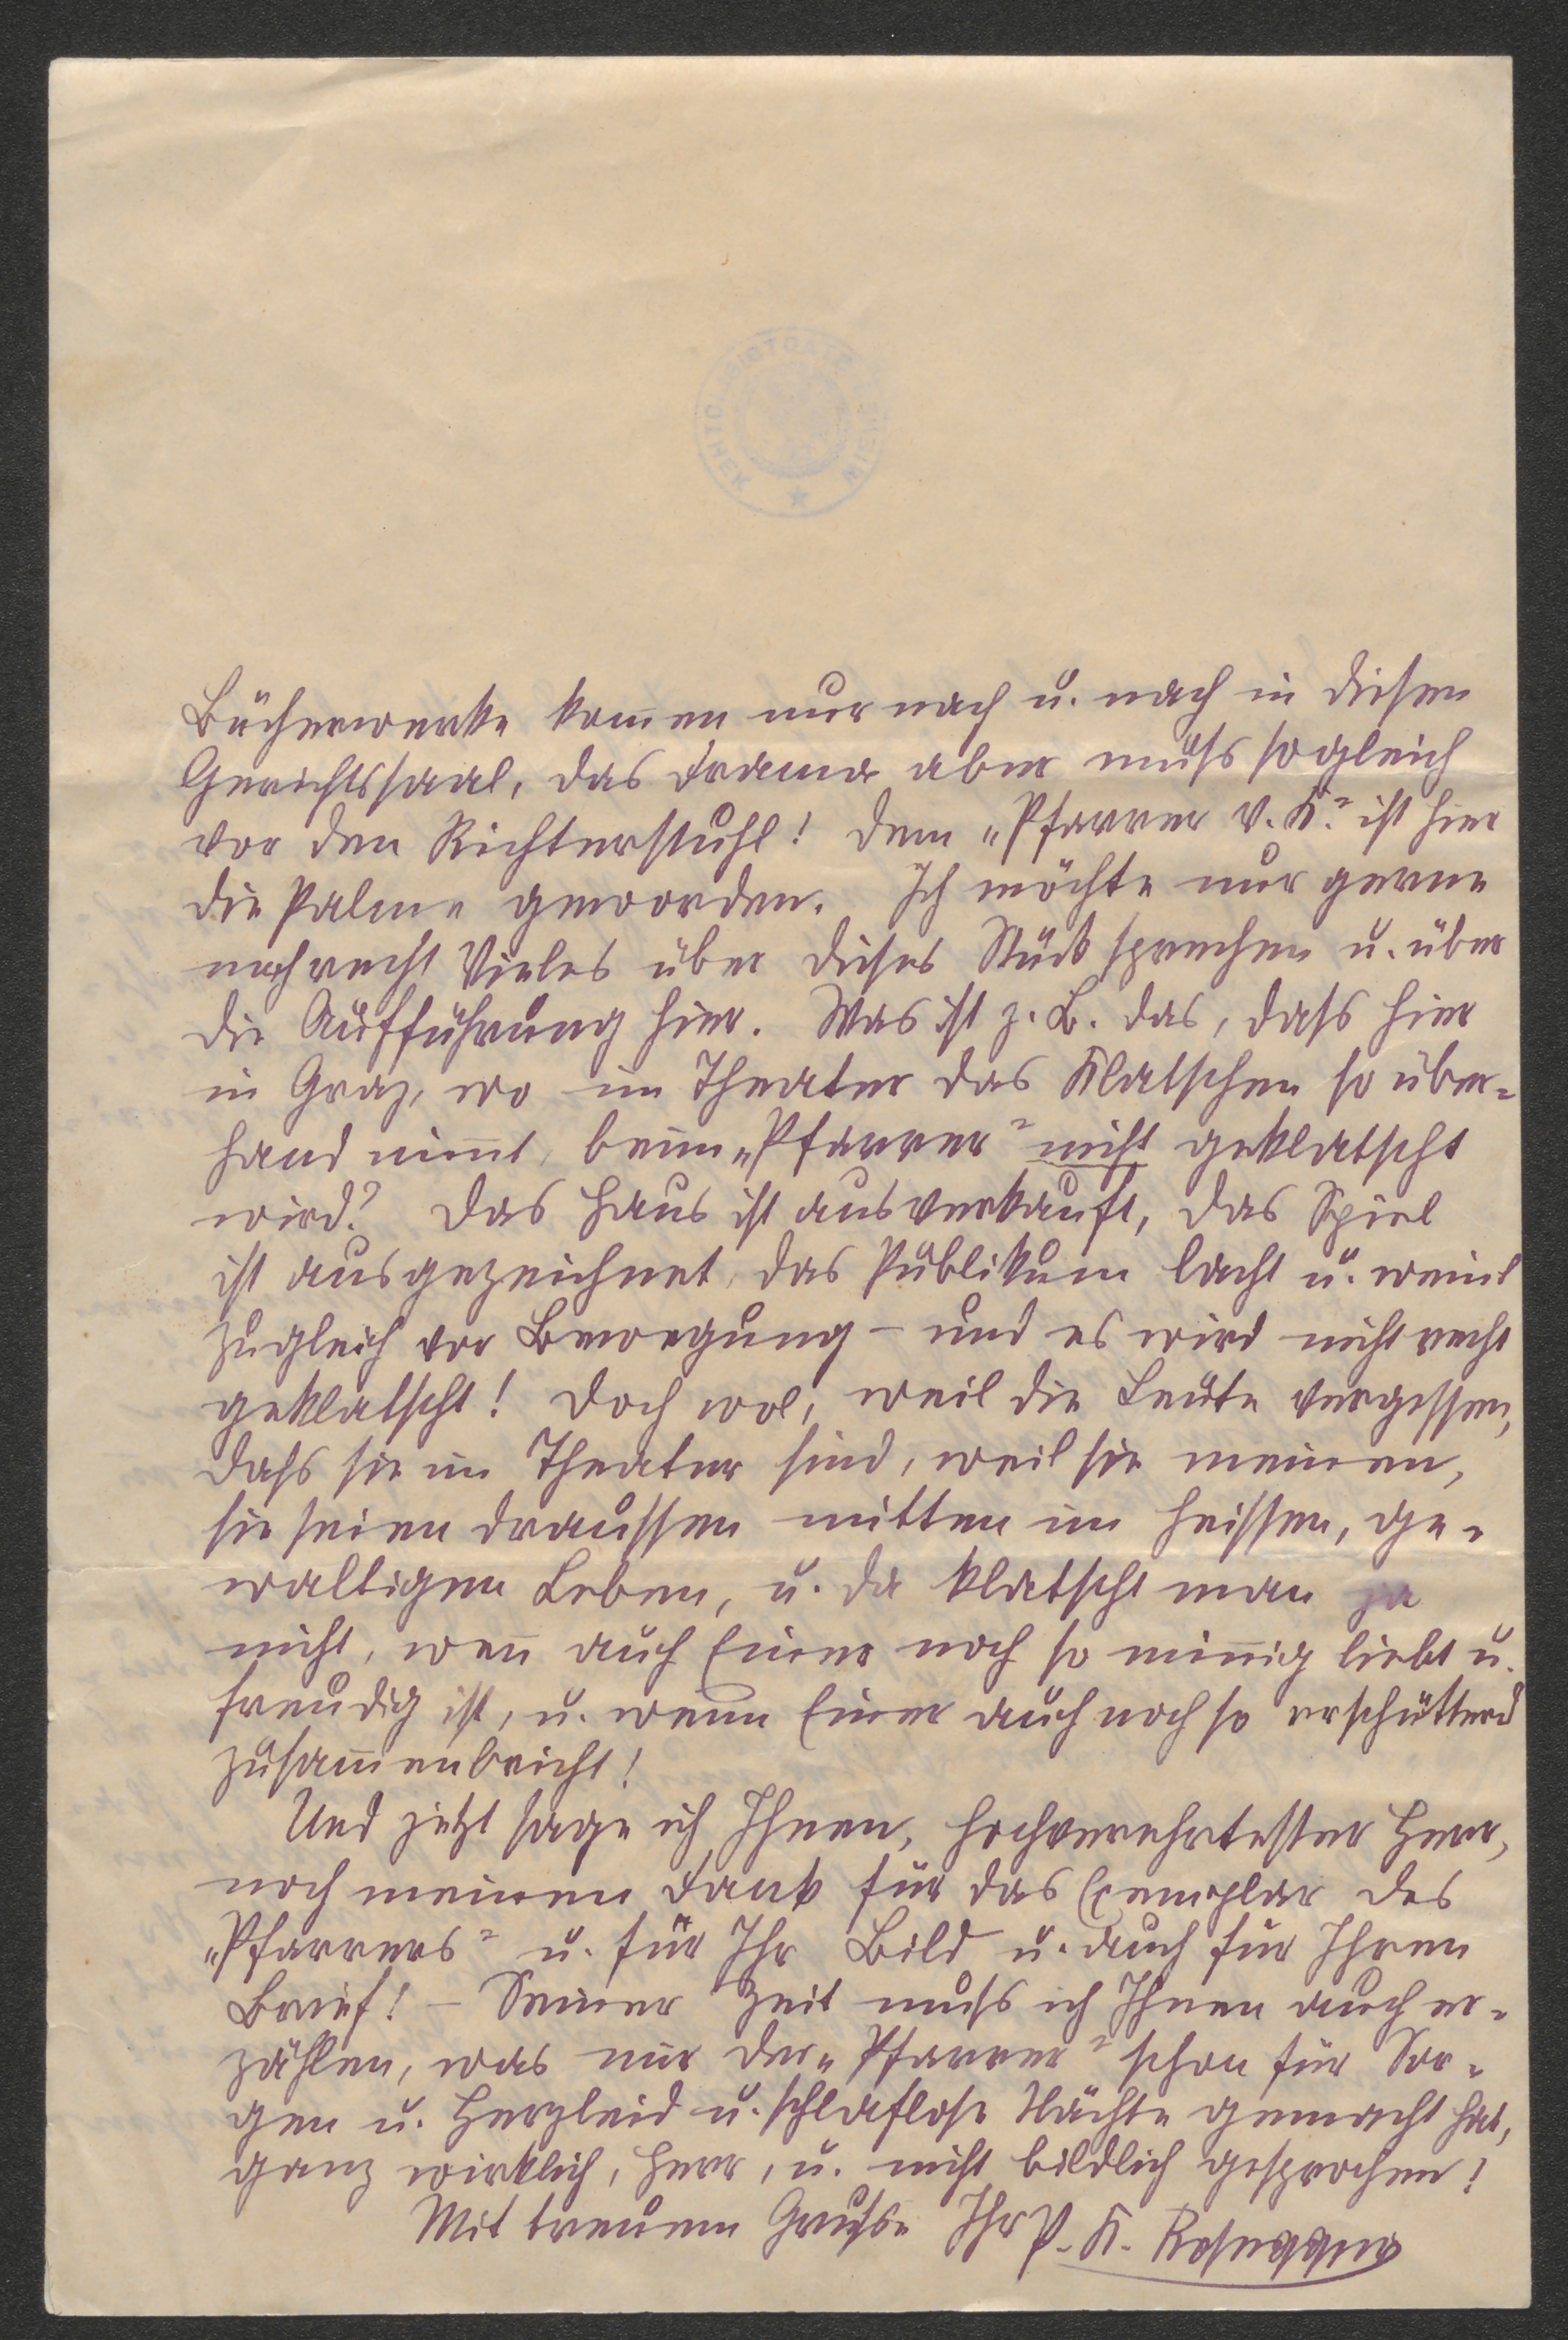 Bücherwerke kom̄en nur nach u. nach in diesen
Gerichtssaal, das Drama aber muſs sogleich
vor den Richterstuhl! Dem „Pfarrer v. K.“ ist hier
die Palme geworden. Ich möchte nur gerne
noch recht Vieles über dieses Stück sprechen u. über
die Aufführung hier. Was ist z. B. das, daſs hier
in Graz, wo im Theater das Klatschen so über-
hand nim̄t, beim „Pfarrer“ nicht geklatscht
wird? Das Haus ist ausverkauft, das Spiel
ist ausgezeichnet, das Publikum lacht u. weint
zugleich vor Bewegung – und es wird nicht recht
geklatscht! Doch wol, weil die Leute vergessen,
daſs sie im Theater sind, weil sie meinen,
sie seien draussen mitten im heissen, ge-
waltigen Leben, u. da klatscht man ja
nicht, wen̄ auch Einer noch so min̄ig liebt u.
freudig ist, u. wenn Einer auch noch so erschütternd
zusam̄enbricht!
Und jetzt sage ich Ihnen, hochverehrtester Herr,
noch meinen Dank für das Exemplar des
„Pfarrers“ u. für Ihr Bild u. auch für Ihren
Brief! – Seiner Zeit muſs ich Ihnen auch er-
zählen, was mir der „Pfarrer“ schon für Sor-
gen u. Herzleid u. schlaflose Nächte gemacht hat,
ganz wirklich, Herr, u. nicht bildlich gesprochen!
Mit treuem Gruſse Ihr P. K. Rosegger